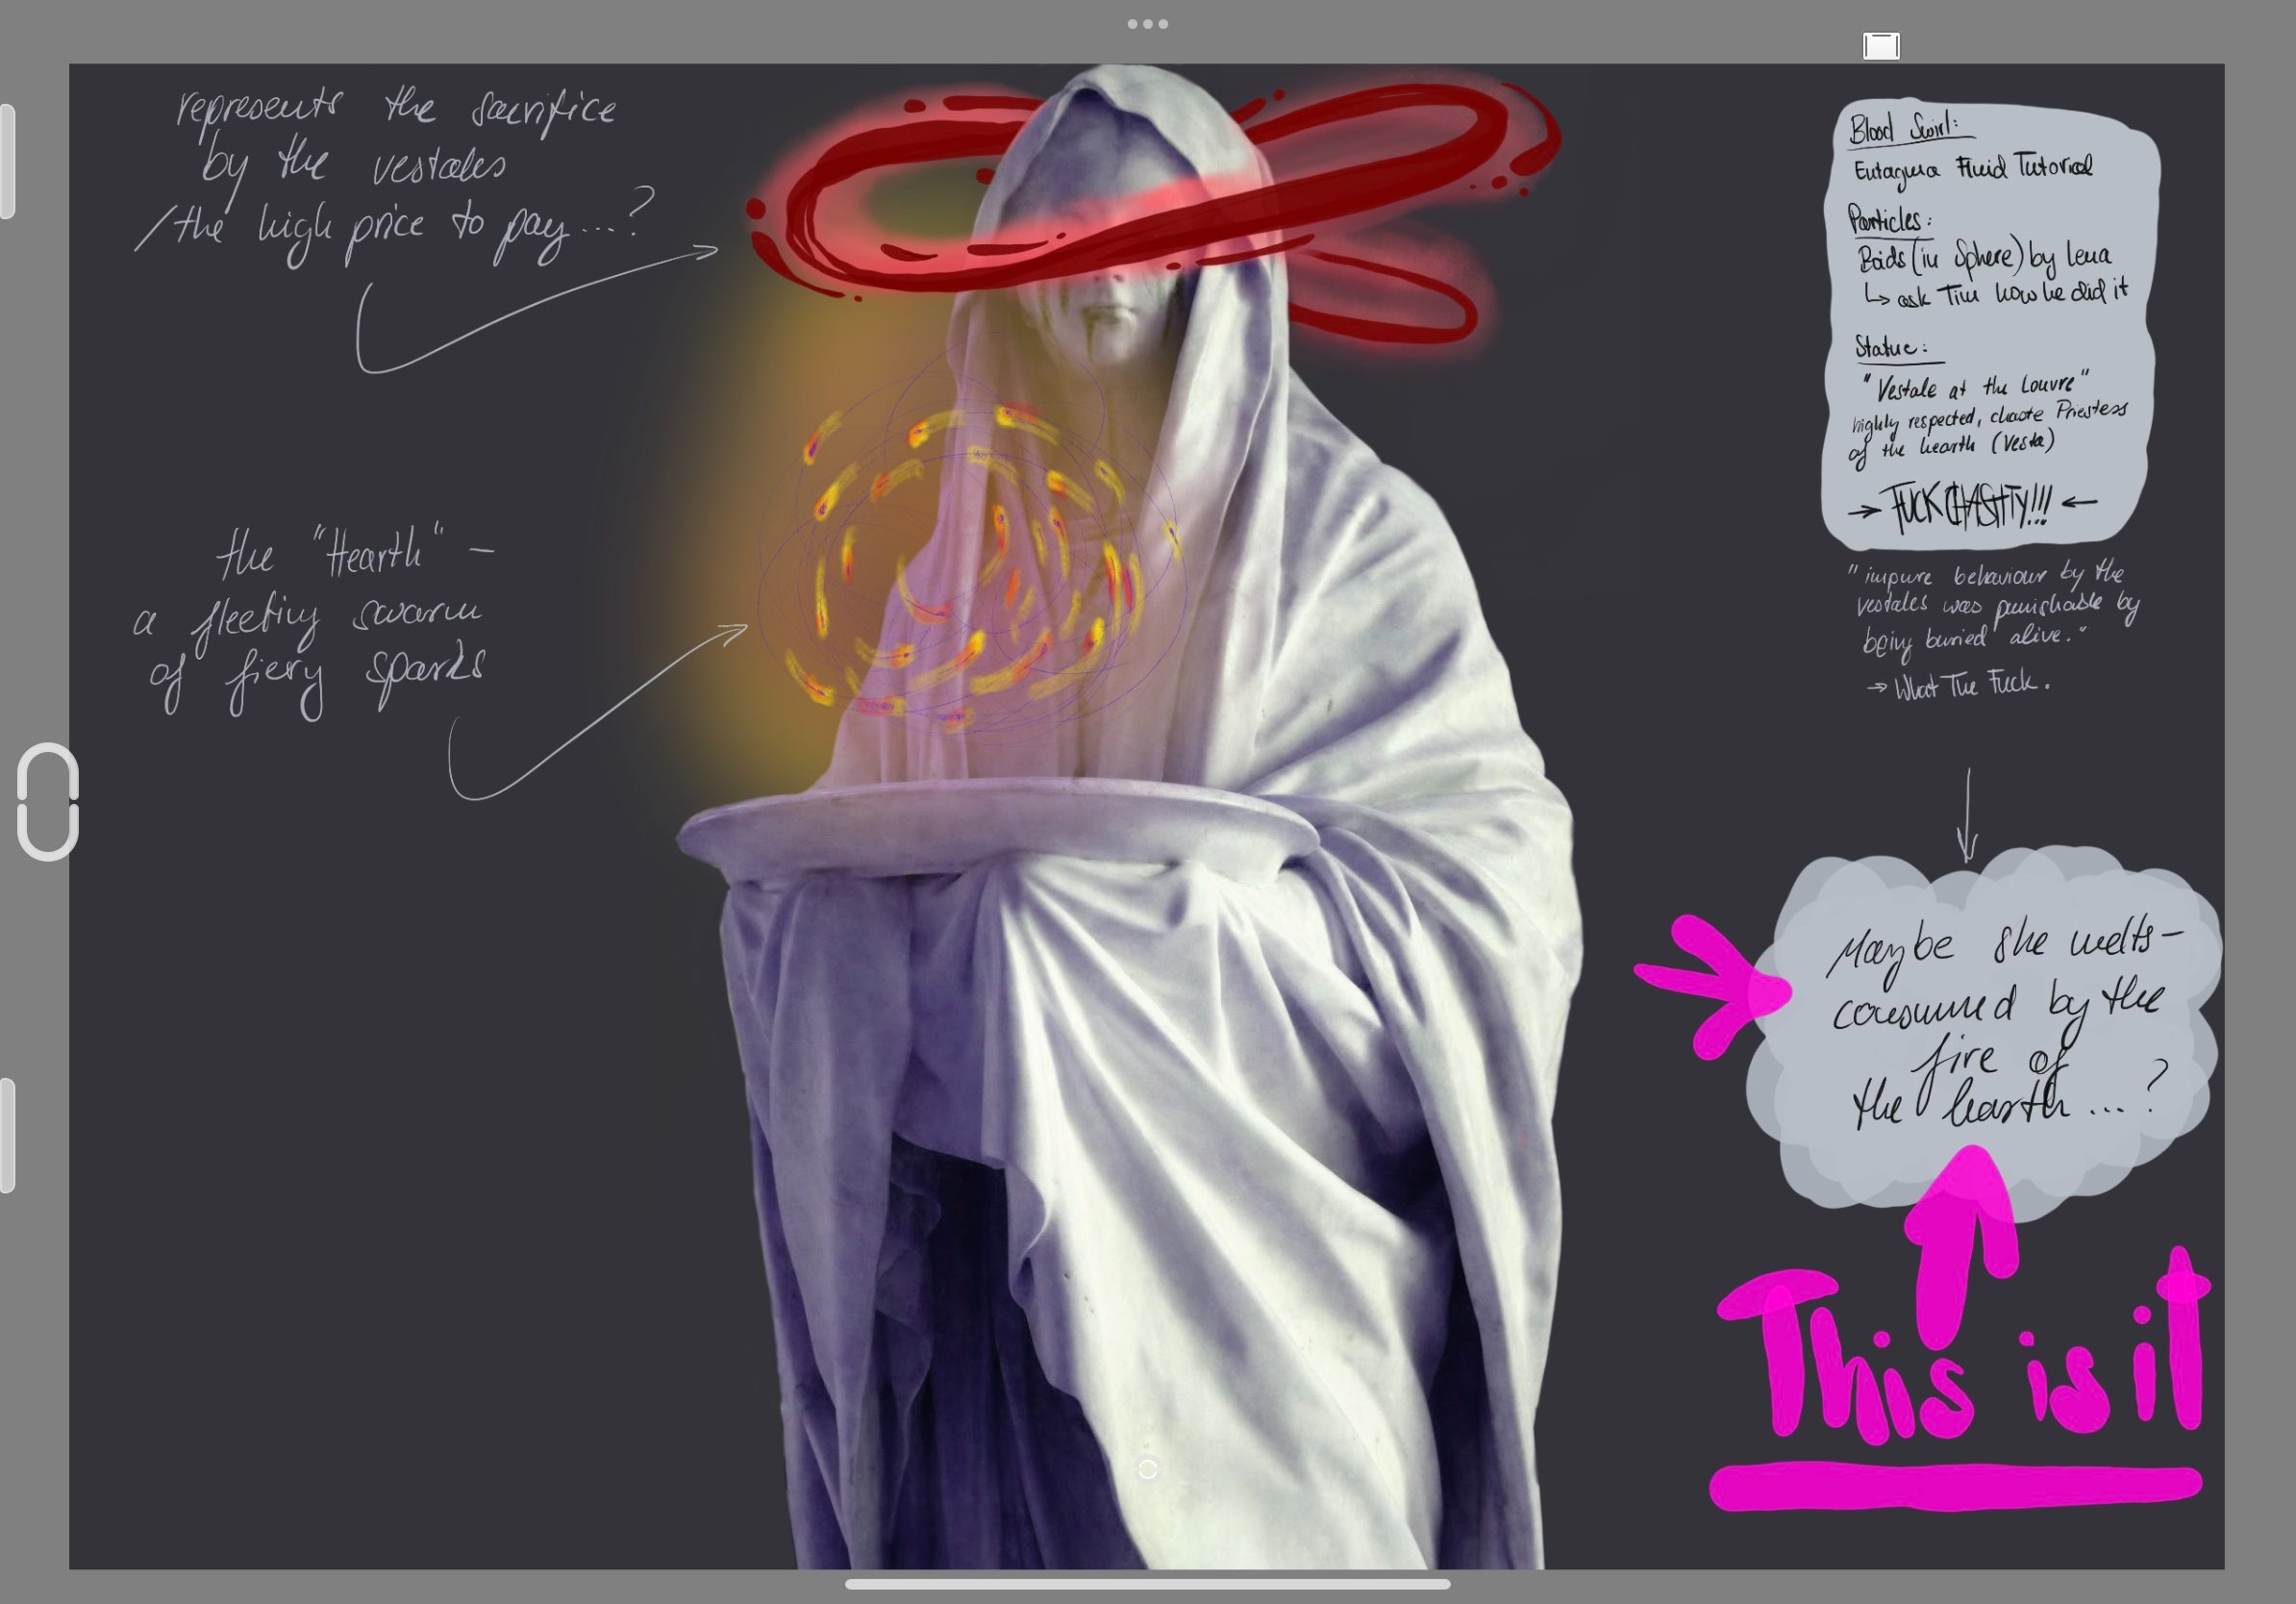 represents the sacrifice
by the vestales
/the high price to pay...?
the "Hearth" –
a fleeting swarm
of fiery sparks
Blood Swirl:
Entagma Fluid Tutorial
Particles:
Boids (in Sphere) by Lena
↳ ask Tim how he did it
Statue:
"Vestale at the Louvre"
highly respected, chaste Priestess
of the hearth (Vesta)
→ FUCK CHASTITY!!! ←
"impure behaviour by the
vestales was punishable by
being buried alive."
→ What The Fuck.
Maybe she melts –
consumed by the
fire of
the hearth ...?
This is it